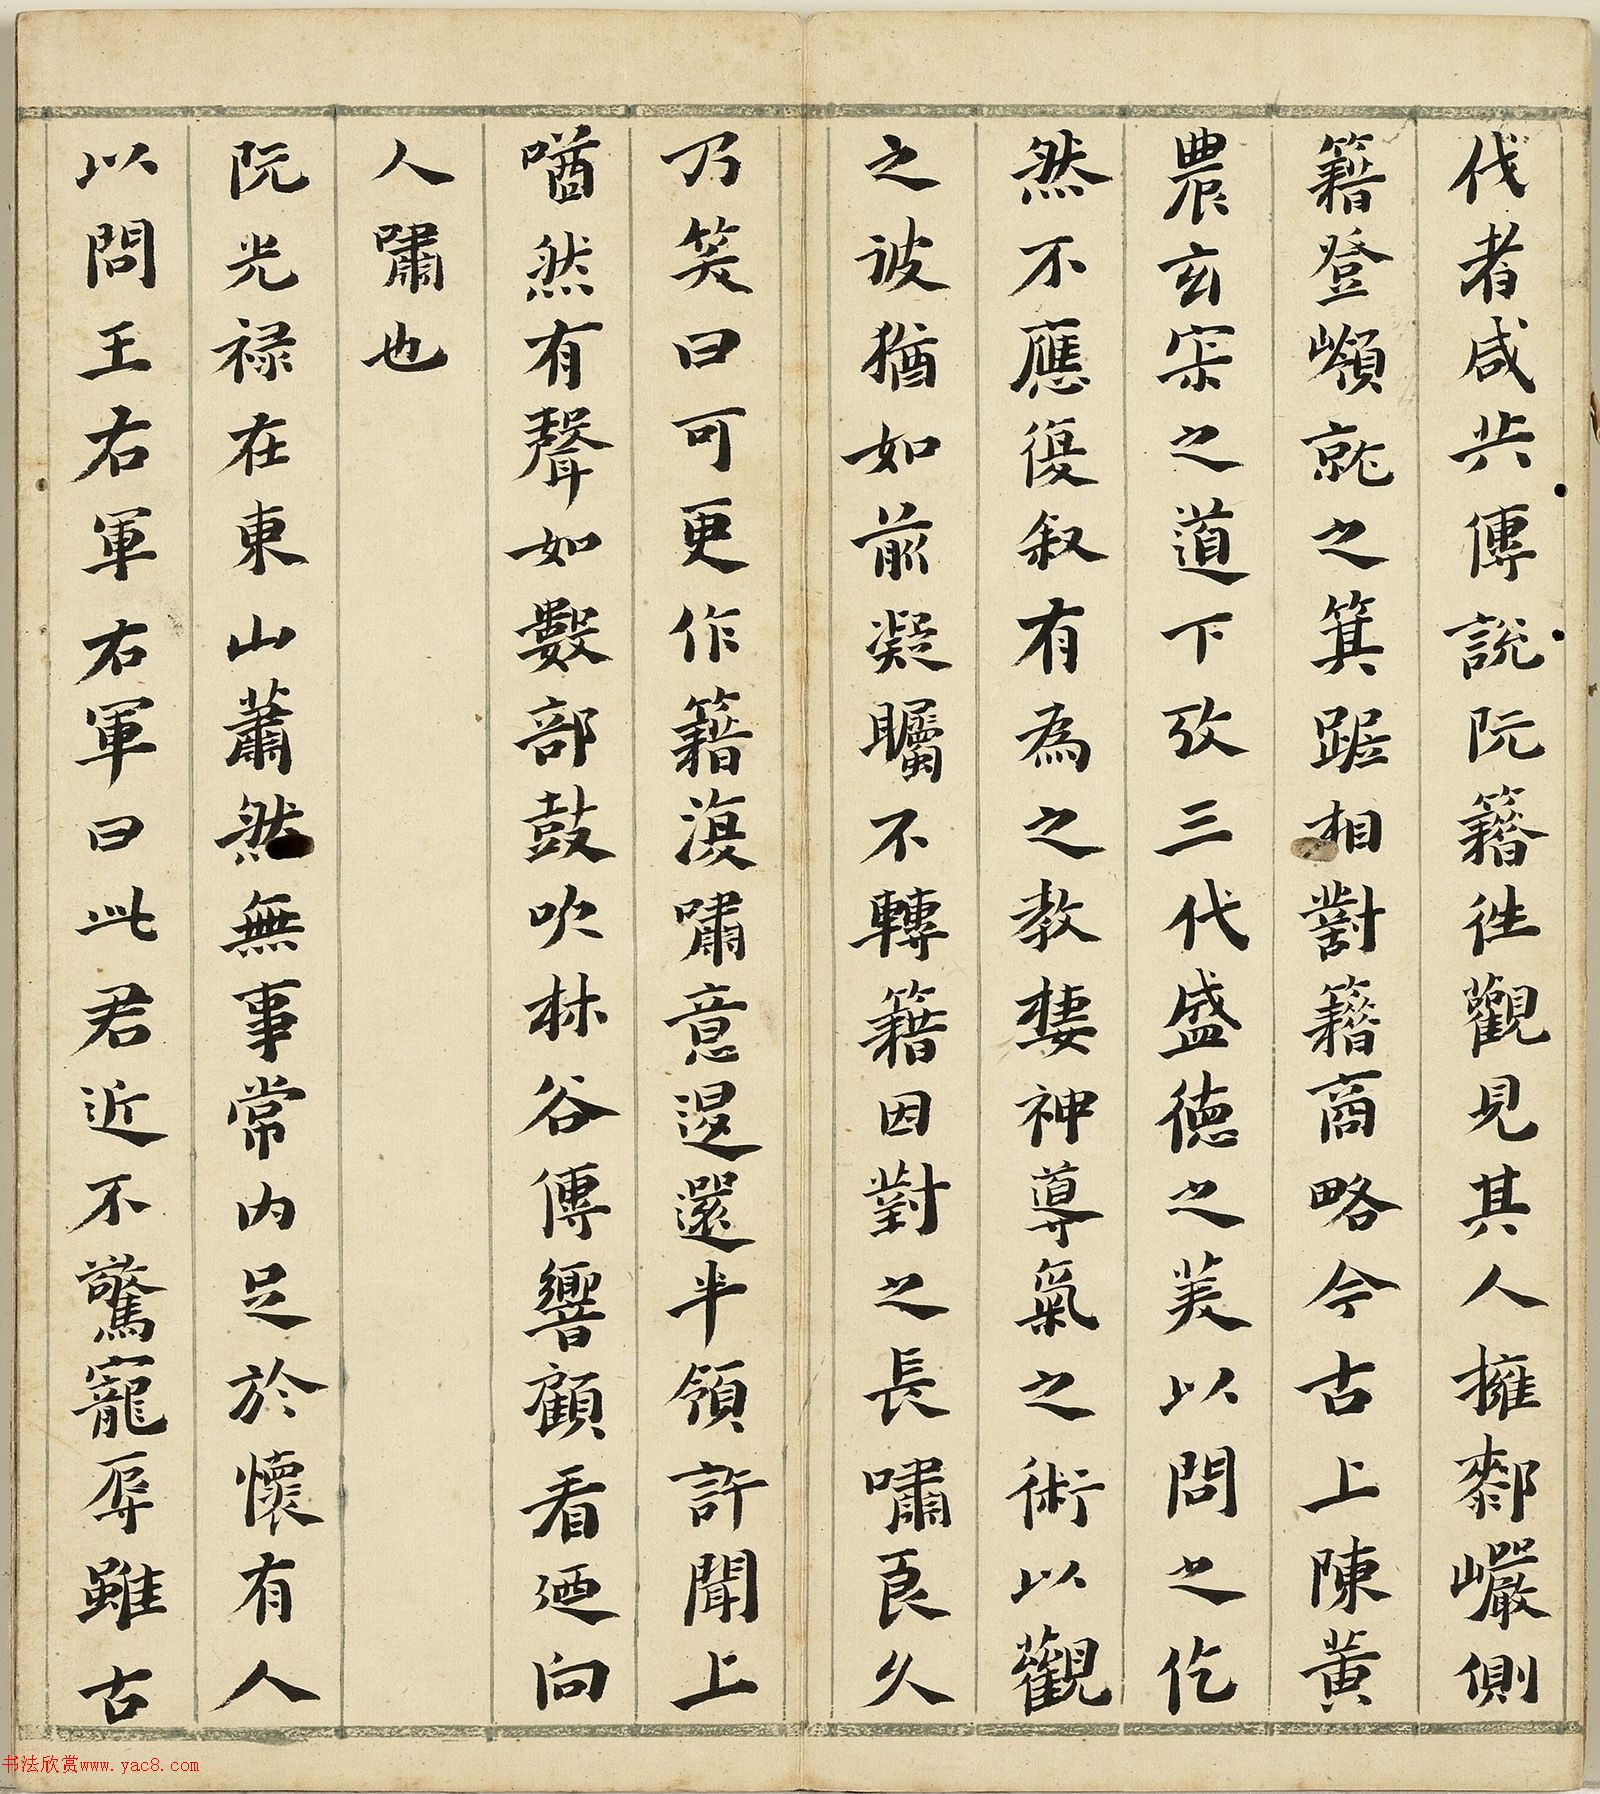 伐者咸共傳說阮籍往觀見其人擁䣛巖側
籍登嶺就之箕踞相對籍商略今古上陳黄
農玄宗之道下攷三代盛德之美以問之仡
然不應復叙有為之教棲神導氣之術以觀
之彼猶如前凝矚不轉籍因對之長嘯良久
乃笑曰可更作籍復嘯意退還半嶺許聞上
㗜然有聲如數部鼓吹林谷傳響顧看迺向
人嘯也
阮光禄在東山蕭然無事常内足於懷有人
以問王右軍右軍曰此君近不驚寵辱雖古
书法欣赏www.yac8.com